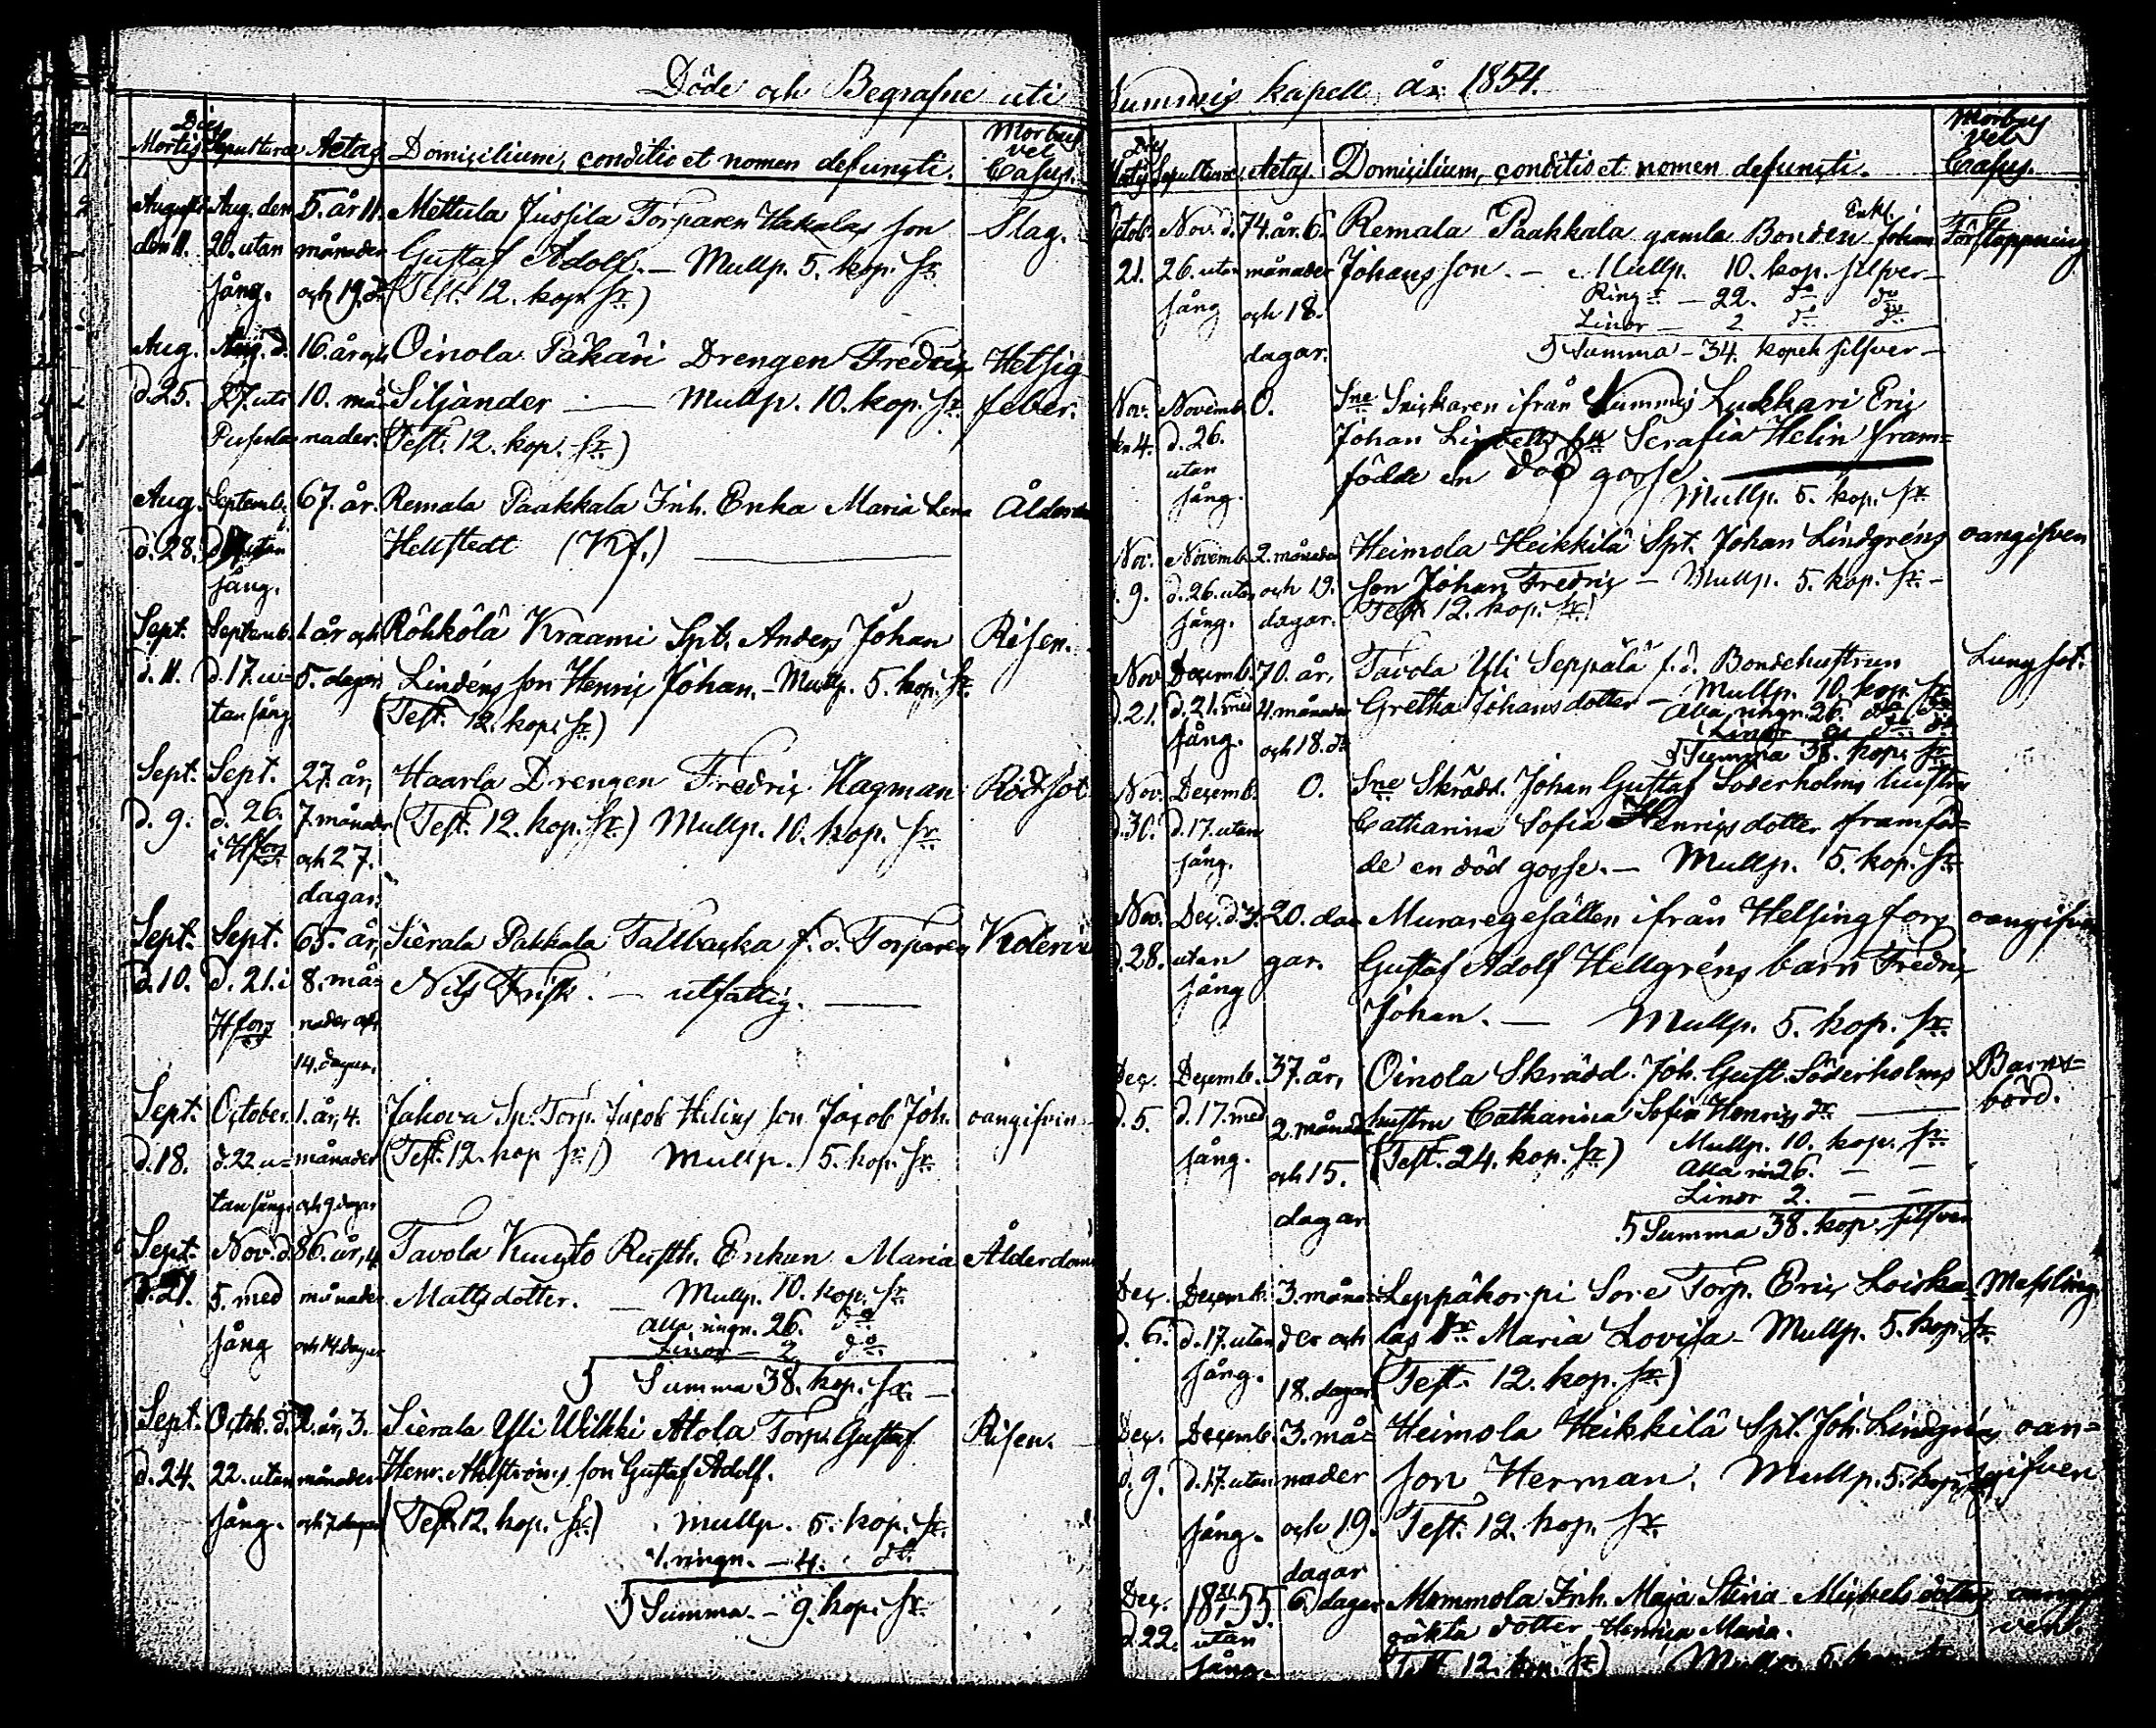 Döde och Begrafne uti Nummis kapell år 1854.
Dies
Mortis Sepulturæ Aetas Domicilium, conditio et nomen defuncti. Morbus vel Casus.
Augusti Aug. den 5. år 11. Mettula Jussila Torparen Hakalas son Slag.
den 11. 20. utan månader Gustaf Adolf. — Mullp. 5. kop. sr
sång. och 19. d. (Test. 12. kop. sr)
Aug. Aug. d. 16. år och Oinola Päkäri Drengen Fredric Hetsig
d. 25. 27. uti 10. må- Siljander — Mullp. 10. kop. sr feber.
Pusula nader. Test. 12. kop. sr)
Aug. Septemb. 67. år. Remala Paakkala Inh. Enka Maria Lena Ålderdom
d. 28. utan Hellstedt (Kf.) —
sång.
Sept. Septemb. 1. år och Röhkölä Kraami Spt. Anders Johan Risen.
d. 11. d. 17. u- 5. dagar Lindéns son Henric Johan. - Mullp. 5. kop. sr
tan sång (Test. 12. kop. sr)
Sept. Sept. 27. år, Haarla Drengen Fredric Hagman Rödsot
d. 9. d. 26. 7. månader (Test. 12. kop. sr) Mullp. 10. kop. sr
i Hfors och 27.
dagar.
Sept. Sept. 65. år, Sierala Pakkala Tallbacka f.d. Torparen
d. 10. d. 21. i 8. må- Nils Frisk. — utfattig. —
Hfors nader och
14. dagar.
Sept. October 1. år, 4. Jakova Sp. Torp. Jacob Helins son Jacob Joh. oangifven
d. 18. d. 22 u- månader (Test. 12. kop sr) Mullp. 5. kop. sr
tan sång och 9 dagar
Sept. Nov. d. 86. år, 4. Tavola Rusth. Enkan Maria Ålderdom
d. 21. 5. med månader Mattsdotter. — Mullp. 10. kop. sr
sång och 14 dagar Alla ringn. 26. do
Linor — 2. do
Summa 38. kop. sr. —
Sept. Octob. d. 2. år, 3. Sierala Yli Wilkki Atola Torp. Gustaf Risen.
d. 24. 22. utan månader Henr. Ahlströms son Gustaf Adolf.
sång. och 7 dagar (Test. 12. kop. sr) Mullp. 5. kop. sr
1. ringn. — 4. do
Summa. — 9. kop. sr
Dies
Mortis Sepulturæ Aetas. Domicilium, conditio et nomen defuncti. Morbus vel Casus.
Octob. Nov. d. 74. år. 6. Remala Paakkala gamla Bonden Enkl. Johan Förstoppning
21. 26. utan månader Johansson. — Mullp. 10. kop. silfver —
sång och 18. Ring — 22. do do
dagar. Linor — 2 do do
Summa — 34. kopek silfver —
Nov. Novemb. 0. Sne Snickaren ifrån Nummis Lukkari Eric
den 4. d. 26. Johan hu Serafia Helin fram=
utan födde en död gosse
sång. Mullp. 5. kop. sr
Nov. Novemb. 2. månader Heimola Heikkilä Spt. Johan Lindgréns oangifven
9. d. 26. utan och 19. son Johan Fredric — Mullp. 5. kop. sr —
sång. dagar. (Test. 12. kop. sr)
Nov. Decemb. 70. år, Tavola Yli Seppälä f.d. Bondehustrun Lungsot.
d. 21. d. 21. med 4. månader Gretha Johansdotter — Mullp. 10. kop. sr
sång. och 18. d. Alla ringn. 26. do do
Linor 2 do do
Summa 38. kop. sr
Nov. Decemb. 0. Sne Skrädd. Johan Gustaf Söderholms hustru
d. 30. d. 17. utan Catharina Sofia Henricsdotter framföd=
sång. de en död gosse. — Mullp. 5. kop. sr
Nov. Dec. d. 3. 20. da- Muraregesällen ifrån Helsingfors oangifven
d. 28. utan gar. Gustaf Adolf Hellgréns barn Fredric
sång Johan. — Mullp. 5. kop. sr
Dec. Decemb. 37. år, Oinola Skrädd. Joh. Gust. Söderholms Barns=
d. 5. d. 17. med 2. månader hustru Catharina Sofia Henrics dr — börd.
sång. och 15. (Test. 24. kop. sr) Mullp. 10. kop. sr
dagar Alla rin 26. — —
Linor 2. — —
Summa 38. kop. silfver
Dec. Decemb. 3. måna- Leppäkorpi Sore Torp. Eric Loiska- Messling
d. 6. d. 17. utan der och las dr Maria Lovisa — Mullp. 5. kop. sr
sång. 18. dagar (Test. 12. kop. sr)
Dec. Decemb. 3. må- Heimola Heikkilä Spt. Joh. Lindgréns oan=
d. 9. d. 17. utan nader son Herman. Mullp. 5. kop. sr gifven
sång. och 19. Test. 12. kop. sr
dagar
Dec. 18 21/1 55. 6. dagar Mommola Inh. Maja Stina Michelsdotters oangif
d. 22. utan oäkta dotter Henrica Maria. ven.
sång. (Test. 12. kop. sr) Mullp. 5. kop. sr